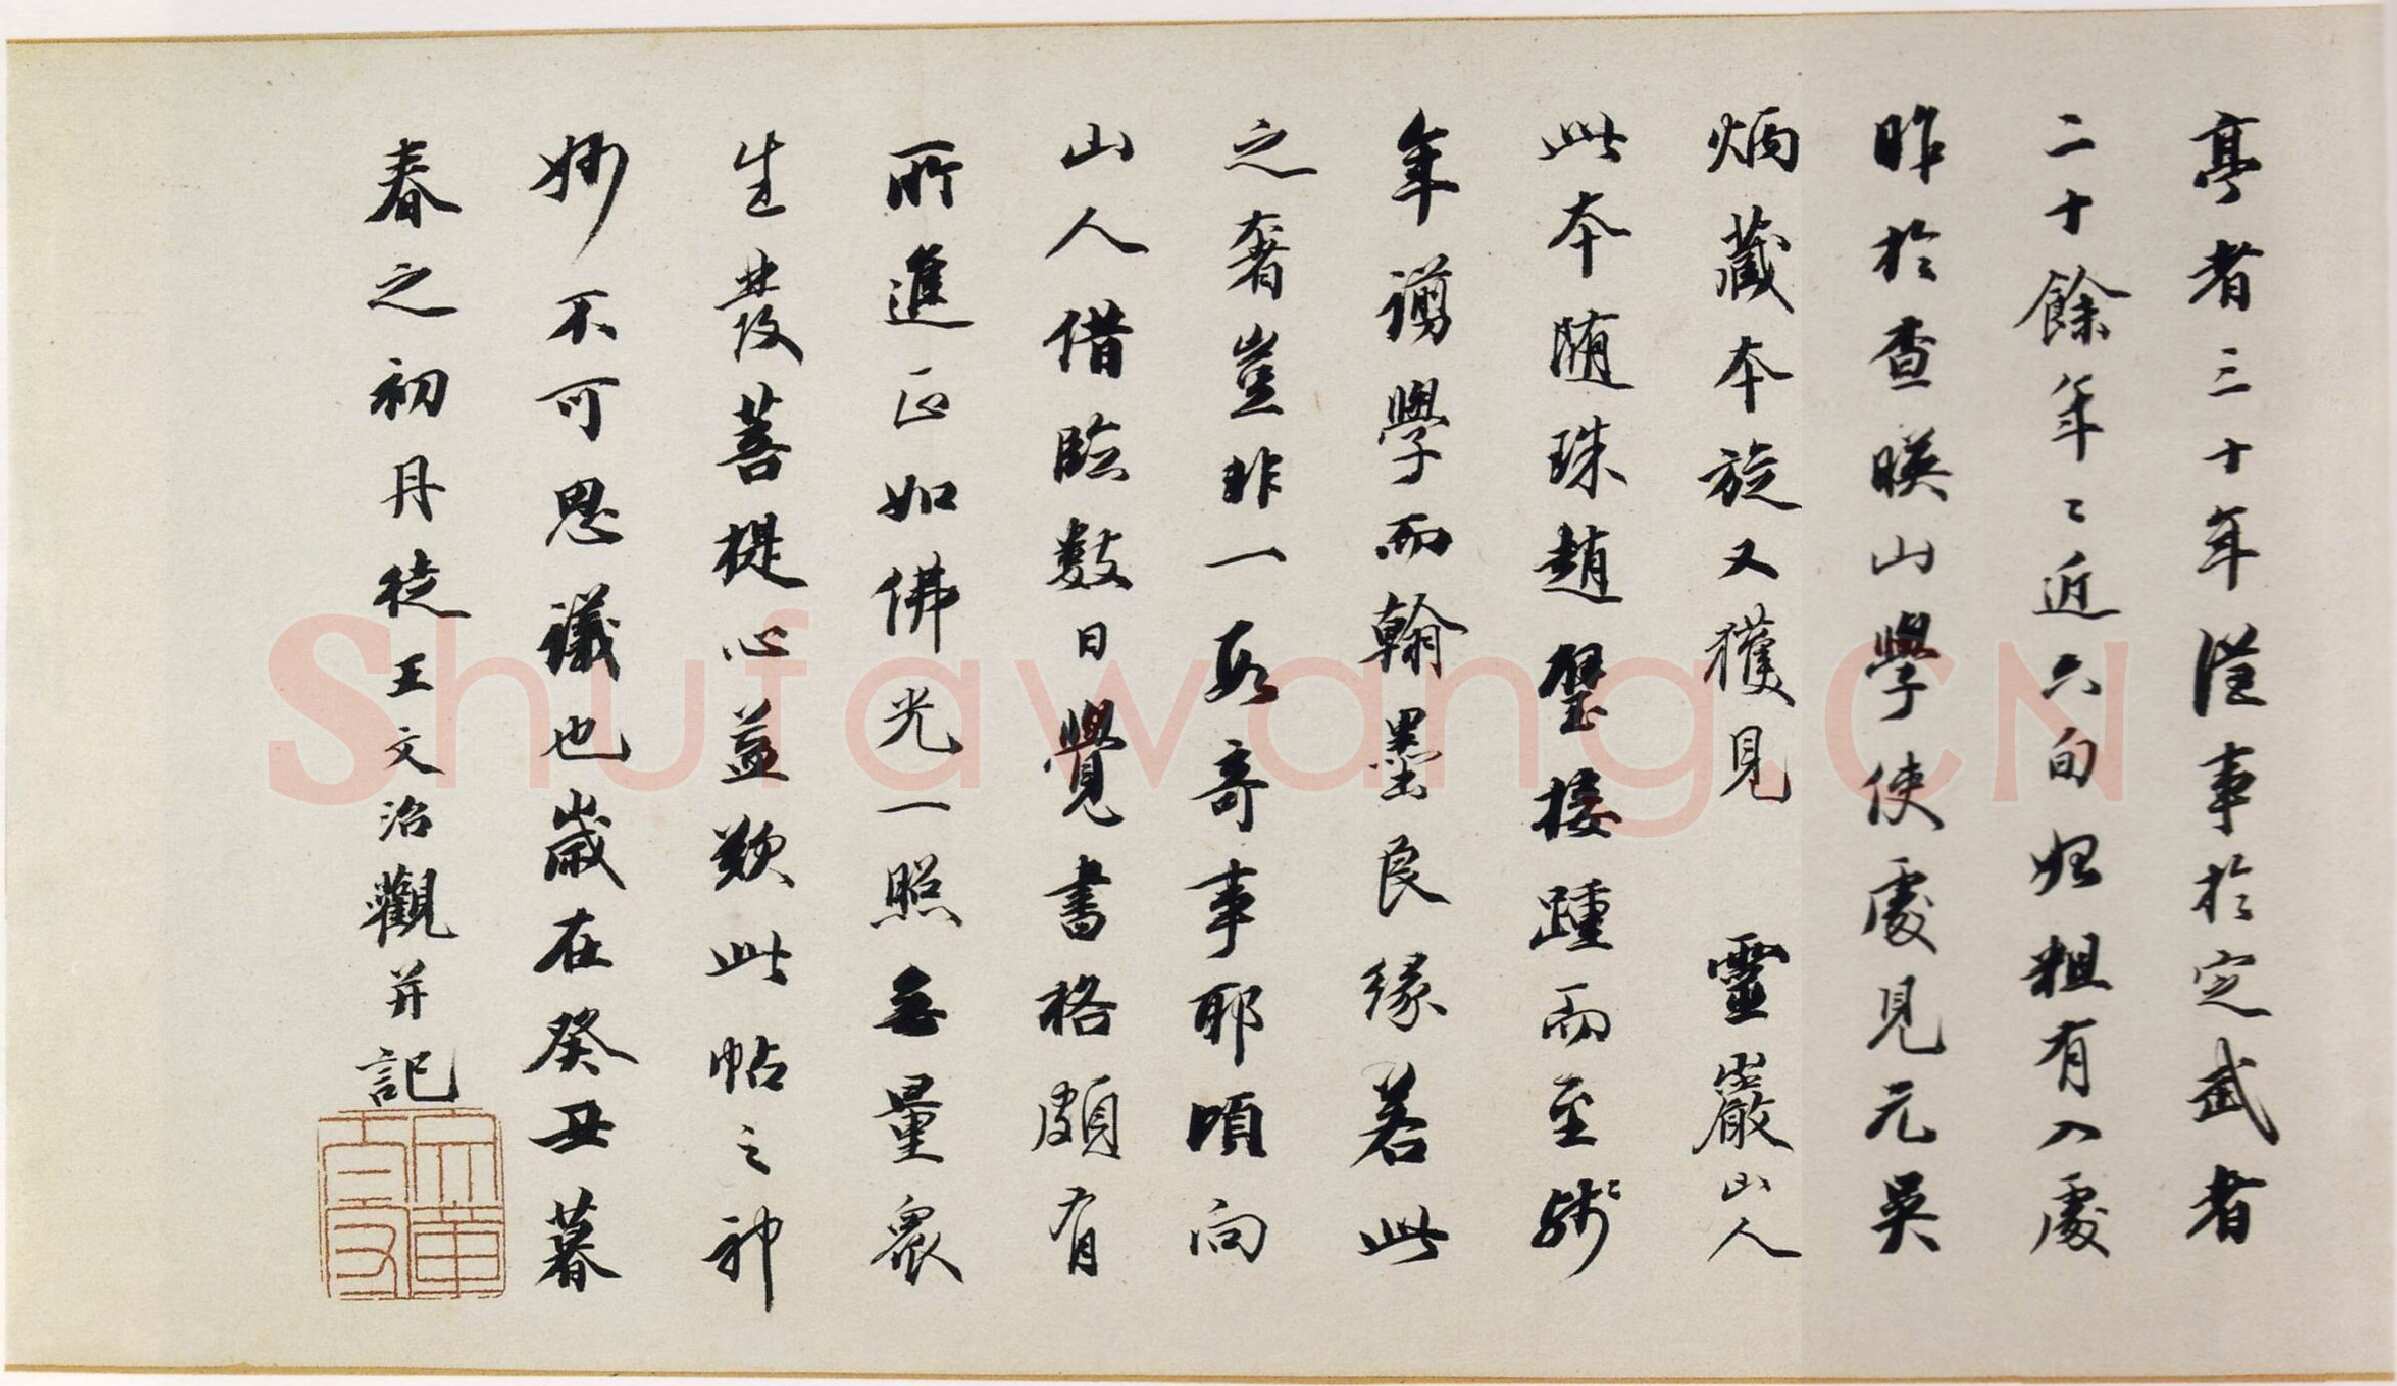 亭者三十年從事於定武者
二十餘年〻近六旬始粗有入處
昨於查暎山學使處見元吳
炳藏本旋又獲見 靈巖山人
此本隨珠趙璧接踵而至殘
年謭學而翰墨良緣若此
之奢豈非一段奇事耶頃向
山人借臨數日覺書格頗有
所進正如佛光一照無量眾
生發菩提心益歎此帖之神
妙不可思議也歲在癸丑暮
春之初丹徒王文治觀并記
Shufawang.CN